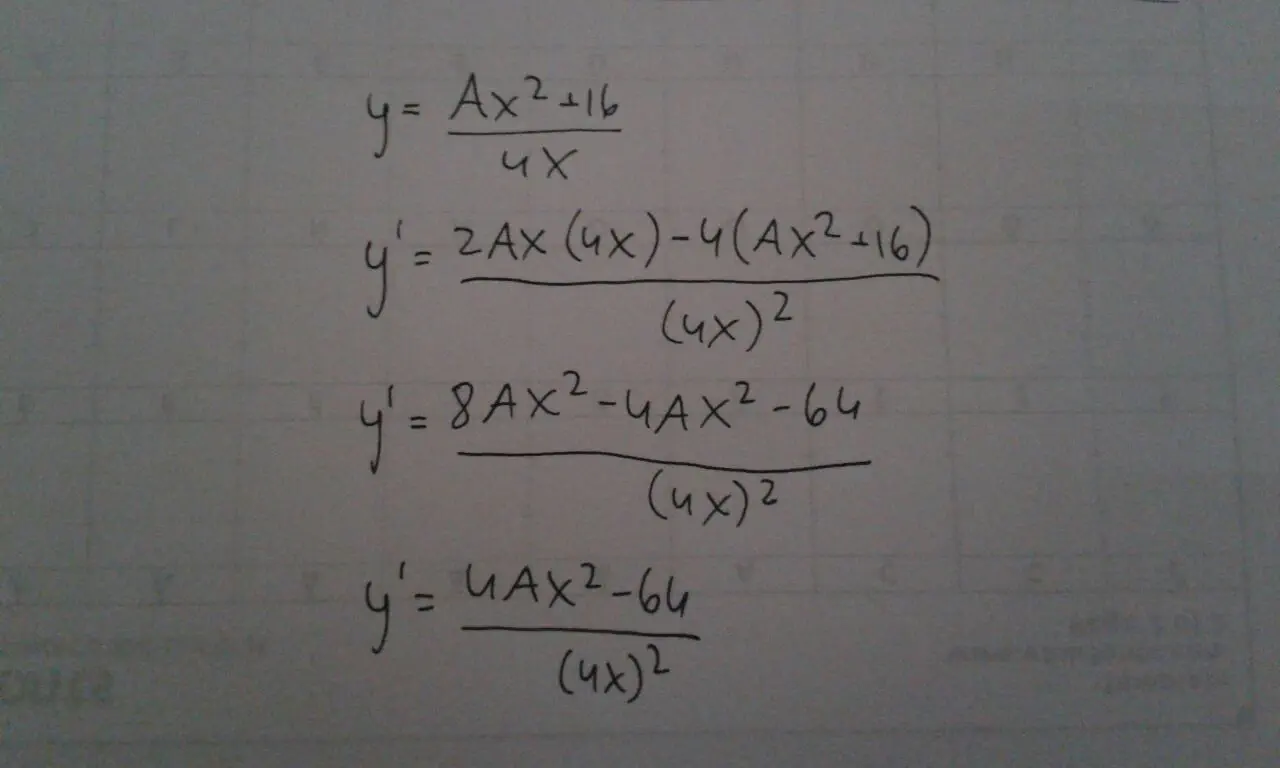 y = (Ax² + 16) / 4x
y' = (2Ax(4x) - 4(Ax² + 16)) / (4x)²
y' = (8Ax² - 4Ax² - 64) / (4x)²
y' = (4Ax² - 64) / (4x)²